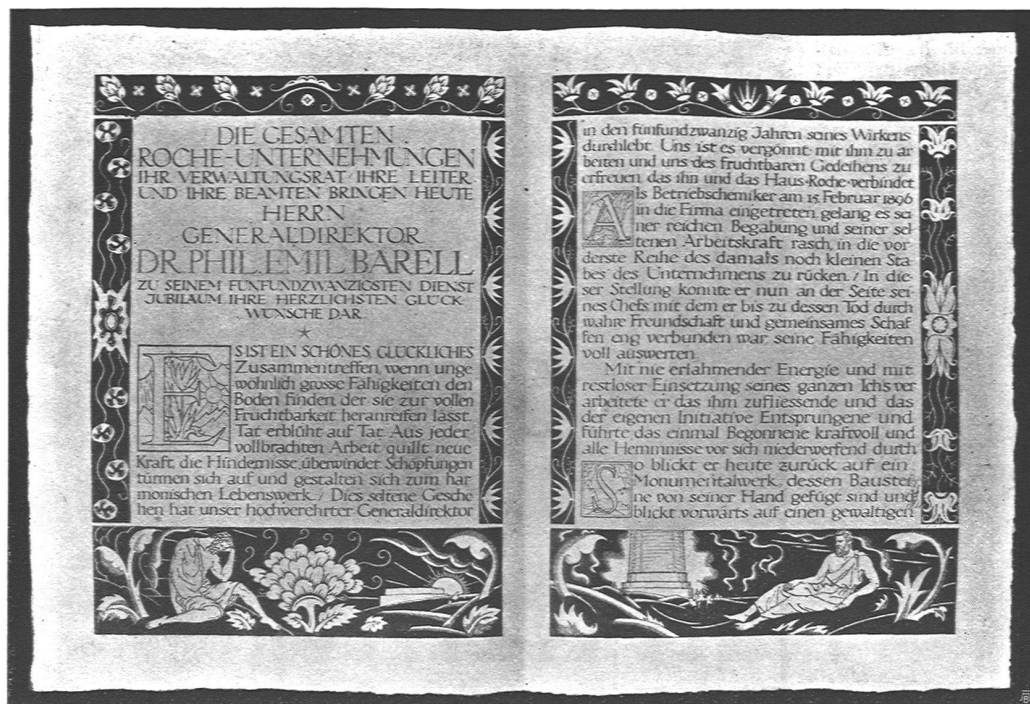 DIE GESAMTEN
ROCHE-UNTERNEHMUNGEN
IHR VERWALTUNGSRAT· IHRE LEITER·
UND IHRE BEAMTEN BRINGEN HEUTE
HERRN
GENERALDIREKTOR
DR. PHIL. EMIL BARELL
ZU SEINEM FÜNFUNDZWANZIGSTEN DIENST
JUBILÄUM IHRE HERZLICHSTEN GLÜCK
WÜNSCHE DAR
ES IST EIN SCHÖNES, GLÜCKLICHES
Zusammentreffen, wenn unge
wöhnlich grosse Fähigkeiten den
Boden finden, der sie zur vollen
Fruchtbarkeit heranreifen lässt.
Tat erblüht auf Tat. Aus jeder
vollbrachten Arbeit quillt neue
Kraft, die Hindernisse überwindet. Schöpfungen
türmen sich auf und gestalten sich zum har
monischen Lebenswerk. / Dies seltene Gesche
hen hat unser hochverehrter Generaldirektor
in den fünfundzwanzig Jahren seines Wirkens
durchlebt. Uns ist es vergönnt· mit ihm zu ar
beiten und uns des fruchtbaren Gedeihens zu
erfreuen, das ihn und das Haus·Roche·verbindet
Als Betriebschemiker am 15. Februar 1896
in die Firma eingetreten, gelang es sei
ner reichen Begabung und seiner sel
tenen Arbeitskraft rasch, in die vor
derste Reihe des damals noch kleinen Sta
bes des Unternehmens zu rücken. / In die
ser Stellung konnte er nun an der Seite sei
nes Chefs mit dem er bis zu dessen Tod durch
wahre Freundschaft und gemeinsames Schaf
fen eng verbunden war, seine Fähigkeiten
voll auswerten.
Mit nie erlahmender Energie und mit
restloser Einsetzung seines ganzen Ich's ver
arbeitete er das ihm zufliessende und das
der eigenen Initiative Entsprungene und
führte das einmal Begonnene kraftvoll und
alle Hemmnisse vor sich niederwerfend durch
So blickt er heute zurück auf ein
Monumentalwerk, dessen Baustei
ne von seiner Hand gefügt sind und
blickt vorwärts auf einen gewaltigen